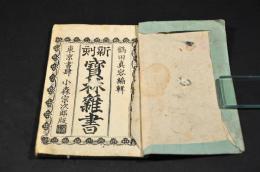 鶴田真容編輯
新刻
寳林雜書
東京書肆 小森宗次郎版